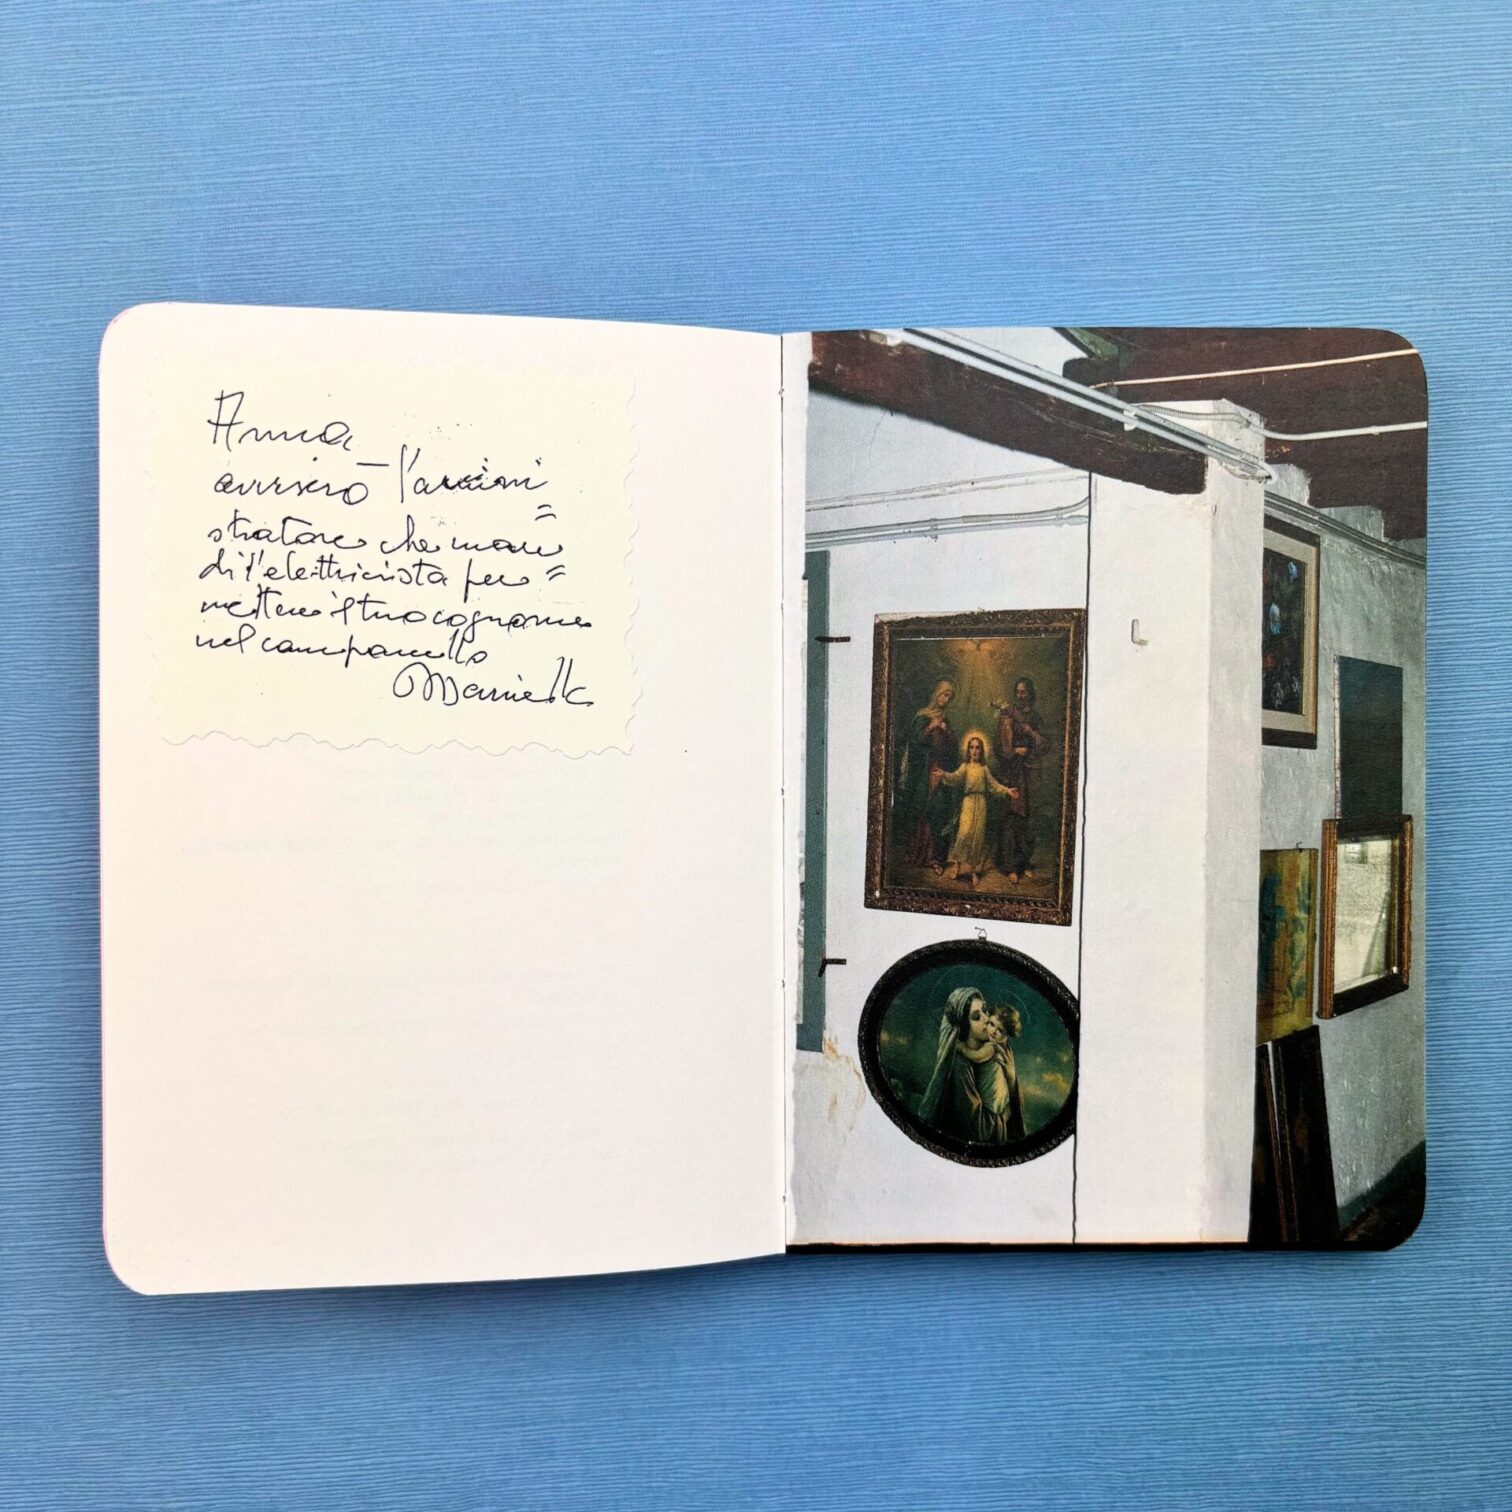 Anna
avviserò l'ammini=
stratore che man=
di l'elettricista per
mettere il tuo cognome
nel campanello
Mariella